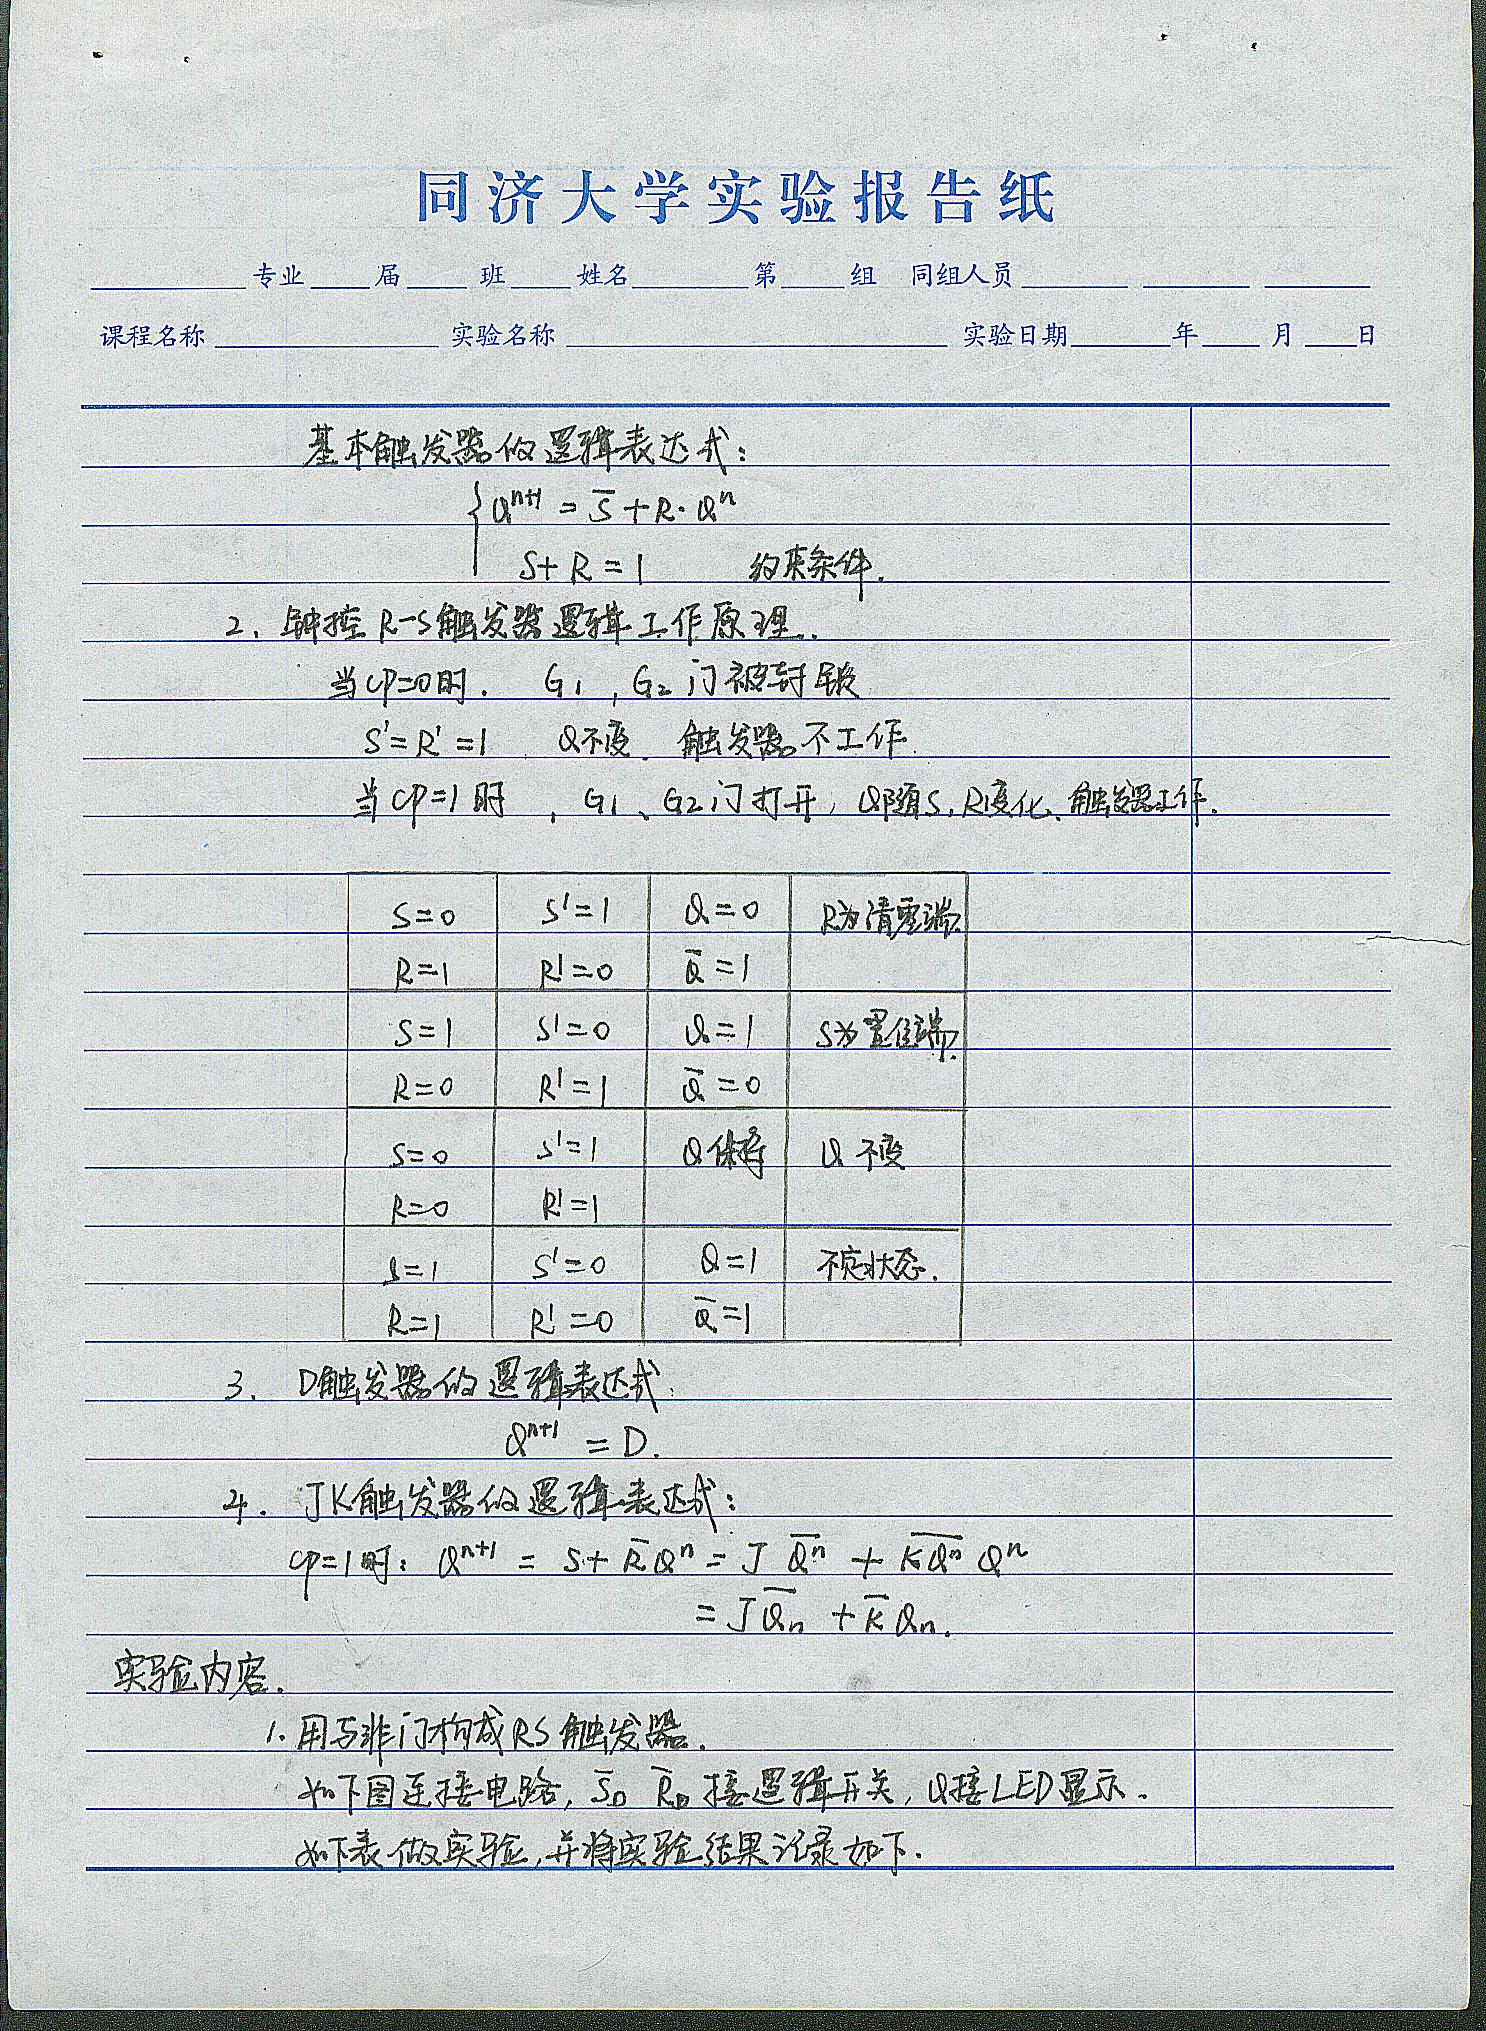 同济大学实验报告纸
专业 届 班 姓名 第 组 同组人员
课程名称 实验名称 实验日期 年 月 日
基本触发器的逻辑表达式：
{Qⁿ⁺¹ = S̅ + R·Qⁿ
S+R=1 约束条件.
2. 钟控R-S触发器逻辑工作原理.
当cp=0时. G₁, G₂门被封锁
S'=R'=1 Q不变. 触发器不工作.
当cp=1时, G₁、G₂门打开, Q随S, R变化、触发器工作.
S=0 S'=1 Q=0 R为清零端.
R=1 R'=0 Q̅=1
S=1 S'=0 Q=1 S为置位端.
R=0 R'=1 Q̅=0
S=0 S'=1 Q保持 Q不变
R=0 R'=1
S=1 S'=0 Q=1 不定状态.
R=1 R'=0 Q̅=1
3. D触发器的逻辑表达式:
Qⁿ⁺¹ = D.
4. JK触发器的逻辑表达式:
cp=1时: Qⁿ⁺¹ = S + R̅Qⁿ = J Q̅ⁿ̅ + K̅Q̅ⁿ̅ Qⁿ
= J Q̅ₙ̅ + K̅ Qₙ.
实验内容.
1. 用与非门构成RS触发器.
如下图连接电路, S̅_D R̅_D 接逻辑开关, Q接LED显示.
如下表做实验, 并将实验结果记录如下.